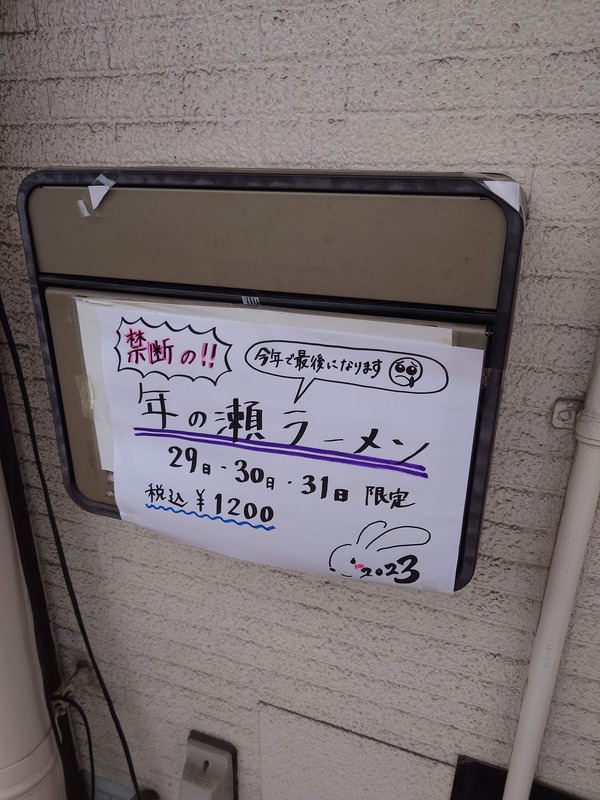 禁断の!!
今年で最後になります
年の瀬ラーメン
29日・30日・31日 限定
税込 ¥1200
2023